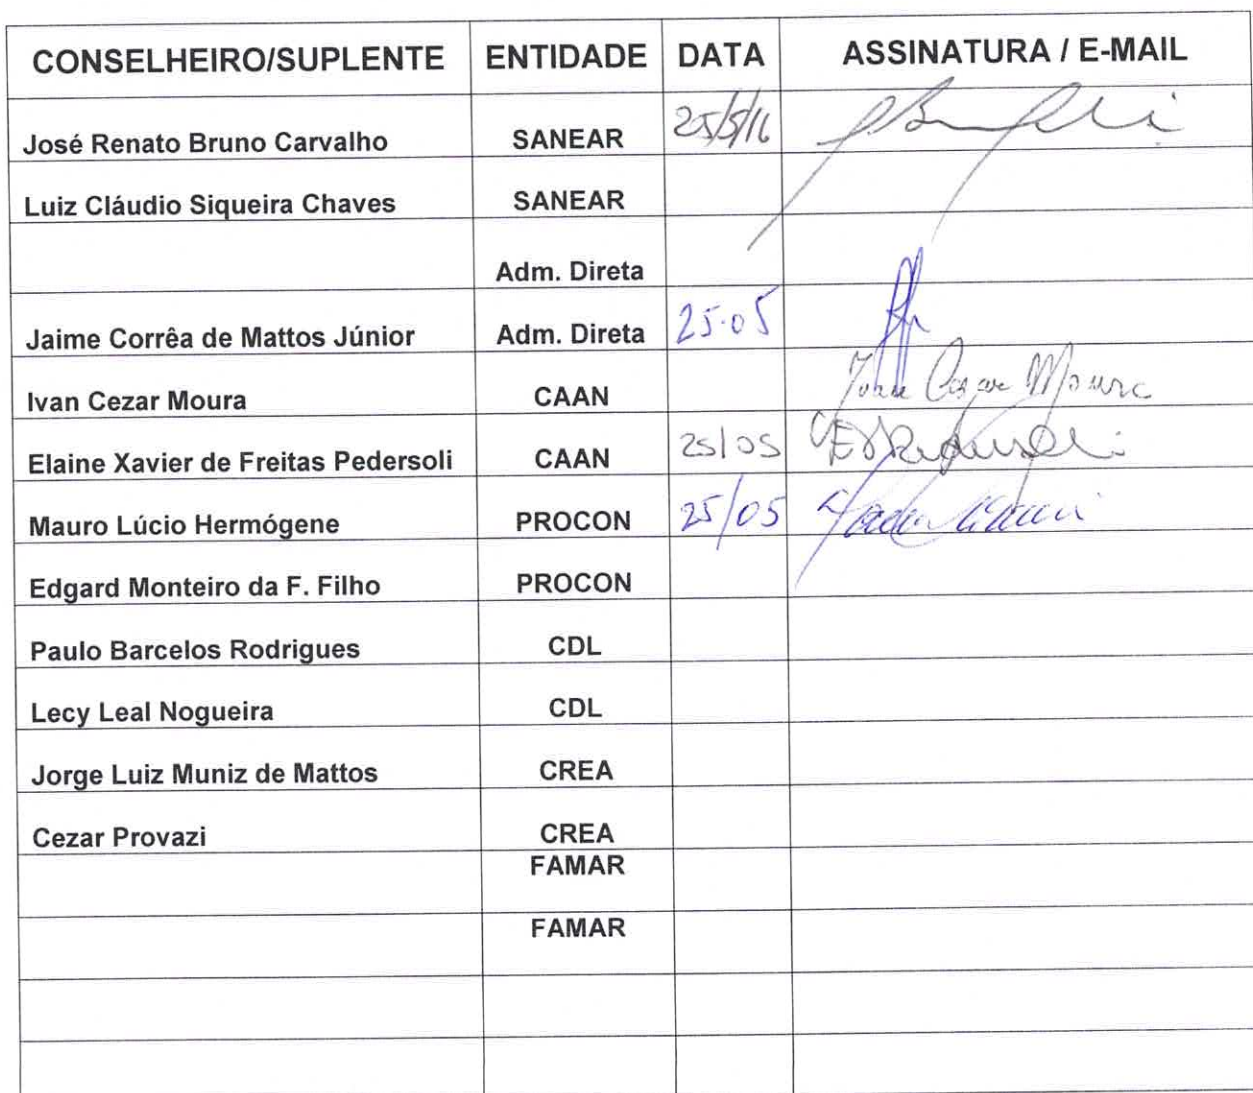 CONSELHEIRO/SUPLENTE ENTIDADE DATA ASSINATURA / E-MAIL
José Renato Bruno Carvalho SANEAR 25/5/16
Luiz Cláudio Siqueira Chaves SANEAR
Adm. Direta
Jaime Corrêa de Mattos Júnior Adm. Direta 25.05
Ivan Cezar Moura CAAN Ivan Cezar Moura
Elaine Xavier de Freitas Pedersoli CAAN 25/05
Mauro Lúcio Hermógene PROCON 25/05
Edgard Monteiro da F. Filho PROCON
Paulo Barcelos Rodrigues CDL
Lecy Leal Nogueira CDL
Jorge Luiz Muniz de Mattos CREA
Cezar Provazi CREA
FAMAR
FAMAR